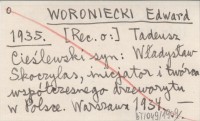 WORONIECKI Edward
1935. [Rec. o:] Tadeusz
Cieślewski syn: Władysław
Skoczylas, inicjator i twórca
współczesnego drzeworytu
w Polsce. Warszawa 1934. —